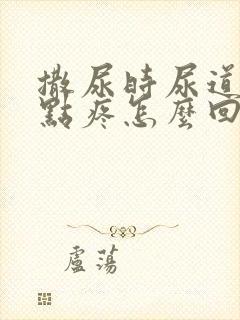 撒尿時尿道
點疼怎麼回
盧蕩